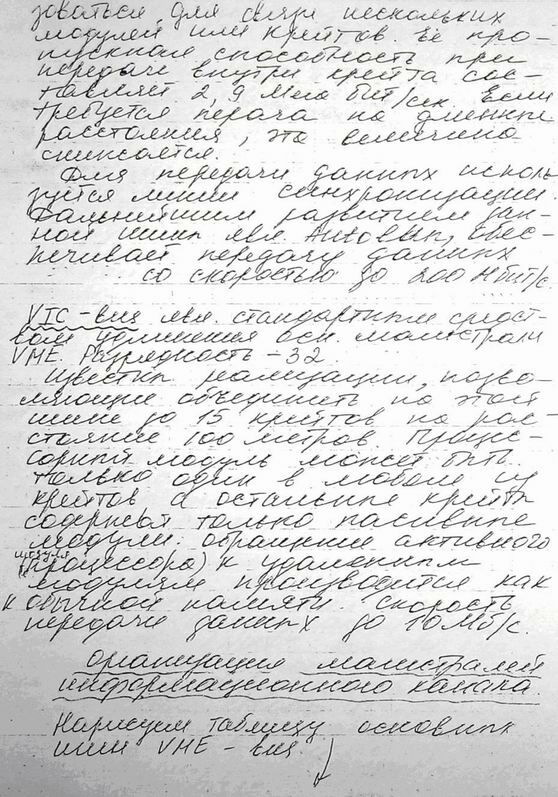 зоваться для связи нескольких
модулей или крейтов. Ее про-
пускная способность при
передаче внутри крейта сос-
тавляет 2,9 Мега бит/сек. Если
требуется перача на длинные
расстояния, эта величина
снижается.
Для передачи данных исполь
зуется линии синхронизации.
Дальнейшим развитием дан-
ной шины явл. Autobus, обес-
печивает передачу данных
со скоростью до 200 Мбит/с
VIC-bus явл. стандартным средст-
вом удлинения осн. магистрали
VME. Разрядность - 32
Известны реализации, позво-
ляющие объединить на этой
шине до 15 крейтов на рас-
стояние 100 метров. Процес-
сорный модуль может быть
только один в любом из
крейтов а остальные крейты
содержат только пасивные
модули. обращение активного
модуля
(процессора) к удаленным
модулям производится как
к обычной памяти. Скорость
передачи данных до 10Мб/с.
Организация магистралей
информационного канала.
Нарисуем таблицу основных
шин VME - bus